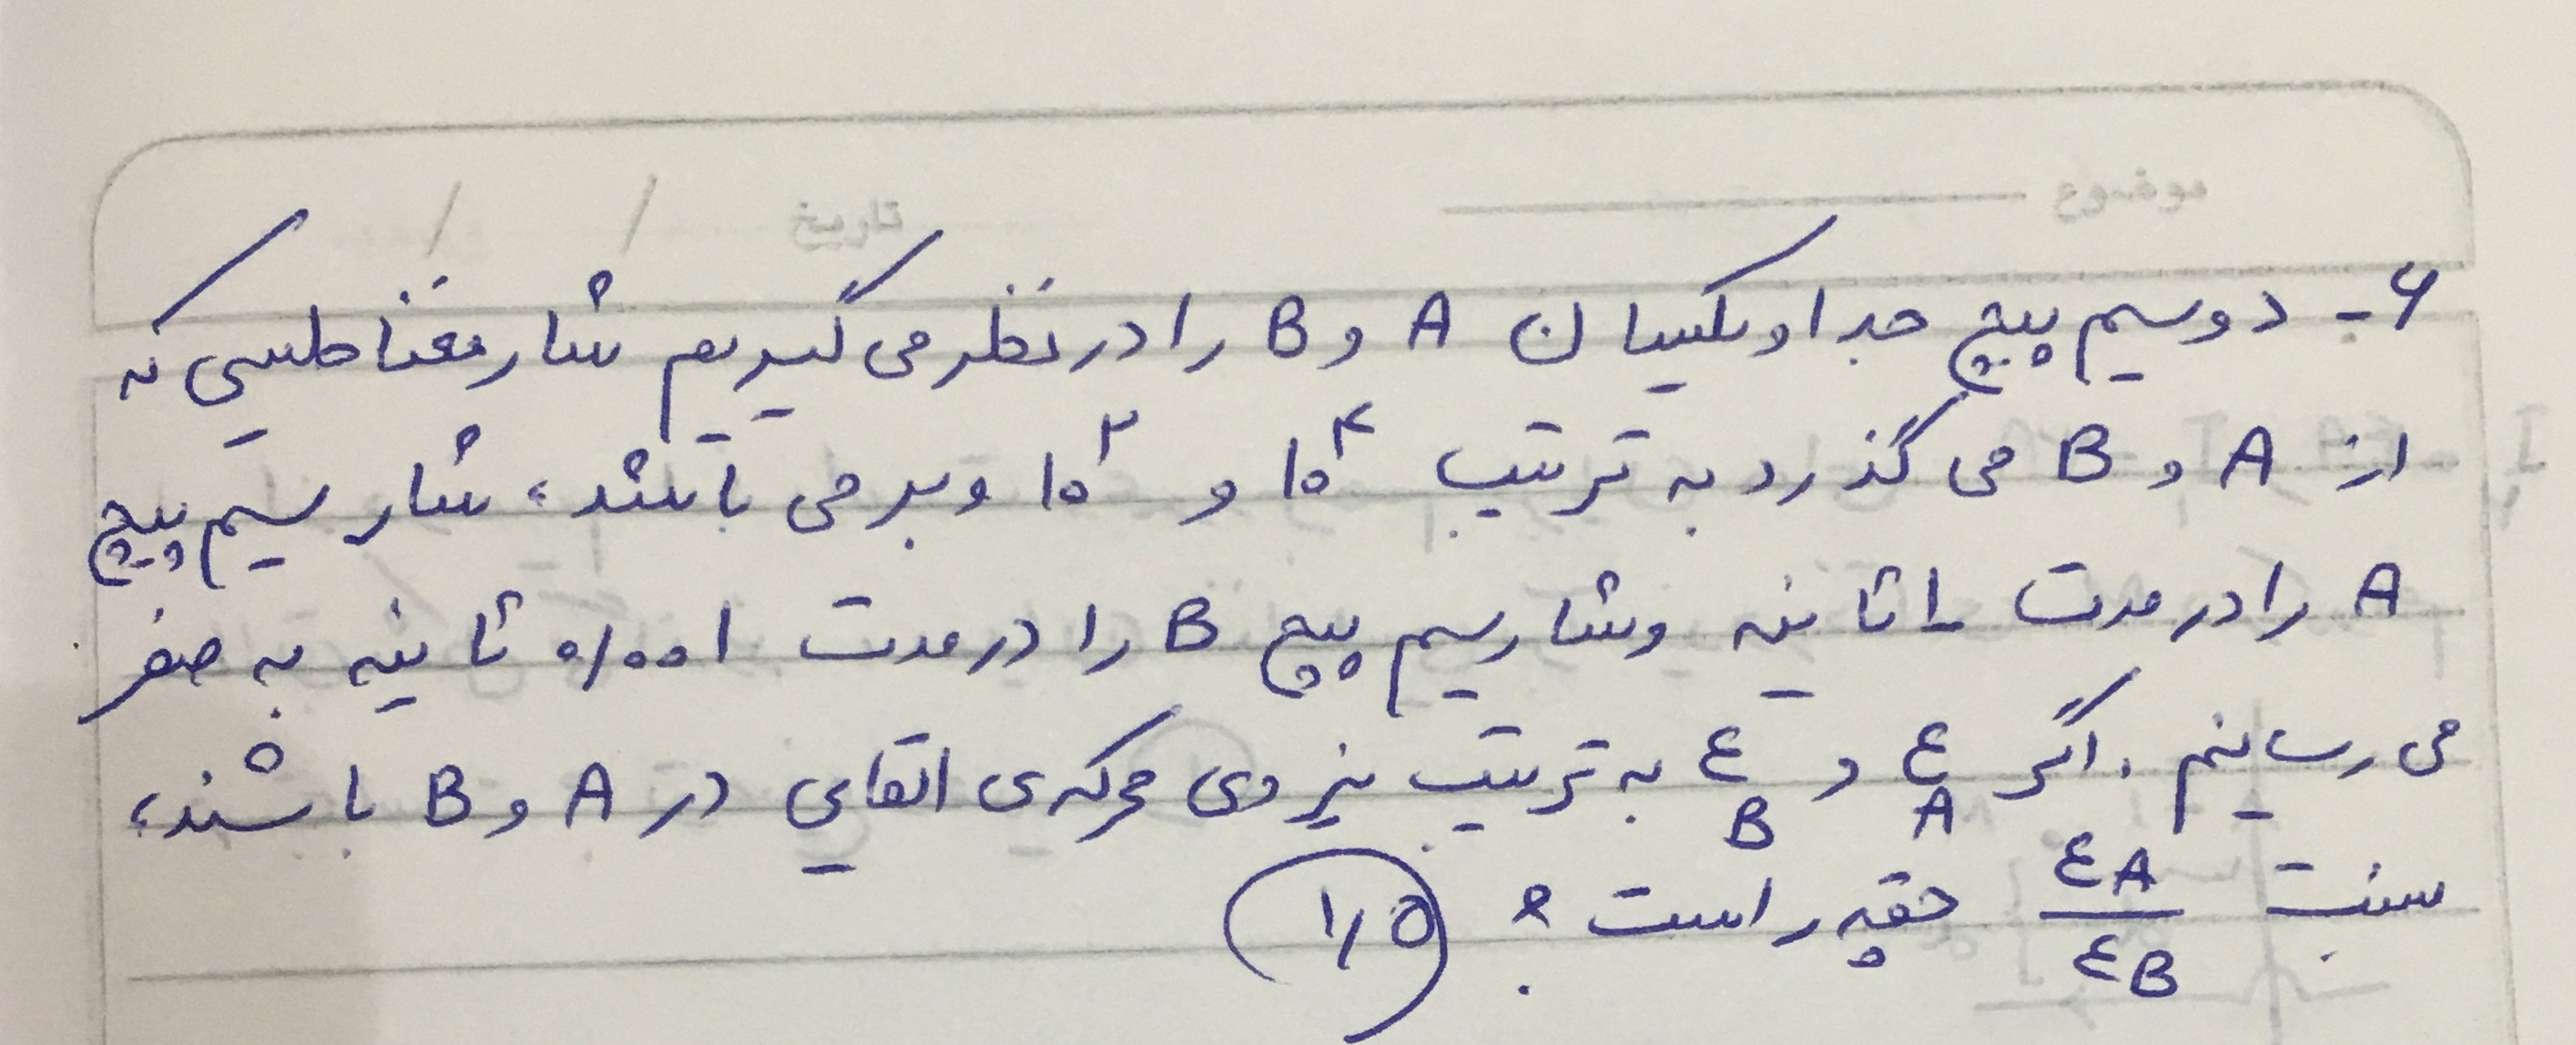 موضوع تاریخ / /
۶- دو سیم پیچ جدا و یکسان A و B را در نظر می گیریم شار مغناطیسی که
از A و B می گذرد به ترتیب ۱۰^۴ و ۱۰^۲ وبر می باشد، شار سیم پیچ
A را در مدت ۱ ثانیه و شار سیم پیچ B را در مدت ۰/۰۰۱ ثانیه به صفر
می رسانیم. اگر ε_A و ε_B به ترتیب نیروی محرکه ی القایی در A و B باشند،
نسبت εA/εB چقدر است؟ ۱/۵